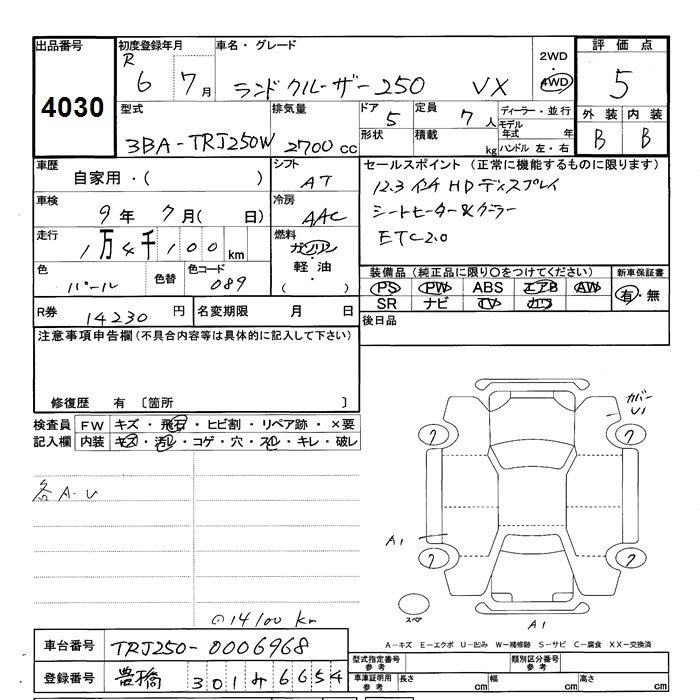 出品番号 4030
初度登録年月 R 6 7月
車名・グレード ランドクルーザー250 VX
2WD
4WD
評価点 5
型式 3BA-TRJ250W
排気量 2700 cc
ドア 5
形状
定員 7人
積載 kg
ディーラー・並行
モデル年式 年
ハンドル 左・右
外装 内装
B B
車歴 自家用・( )
シフト AT
セールスポイント (正常に機能するものに限ります)
12.3インチ HDディスプレイ
シートヒーター&クーラー
ETC2.0
車検 9年 7月( 日)
冷房 AAC
走行 1万4千100km
燃料 ガソリン
軽油
( ・ )
色 パール
色替
色コード 089
装備品 (純正品に限り〇をつけてください)
PS PW ABS エアB AW
SR ナビ TV カワ
新車保証書
有・無
R券 14230 円
名変期限 月 日
後日品
注意事項申告欄(不具合内容等は具体的に記入して下さい)
修復歴 有 〔箇所 〕
検査員 FW キズ・飛石・ヒビ割・リペア跡・×要
記入欄 内装 キズ・汚レ・コゲ・穴・スレ・キレ・破レ
各A-U
@14100km
カバー
U1
7 7
7 7
A1
スペア
A1
A-キズ E-エクボ U-凹み W-補修跡 S-サビ C-腐食 XX-交換済
車台番号 TRJ250-0006968
登録番号 豊橋 301み6654
型式指定番号
参考
類別区分番号
参考
車庫証明用
参考
長さ cm
幅 cm
高さ cm